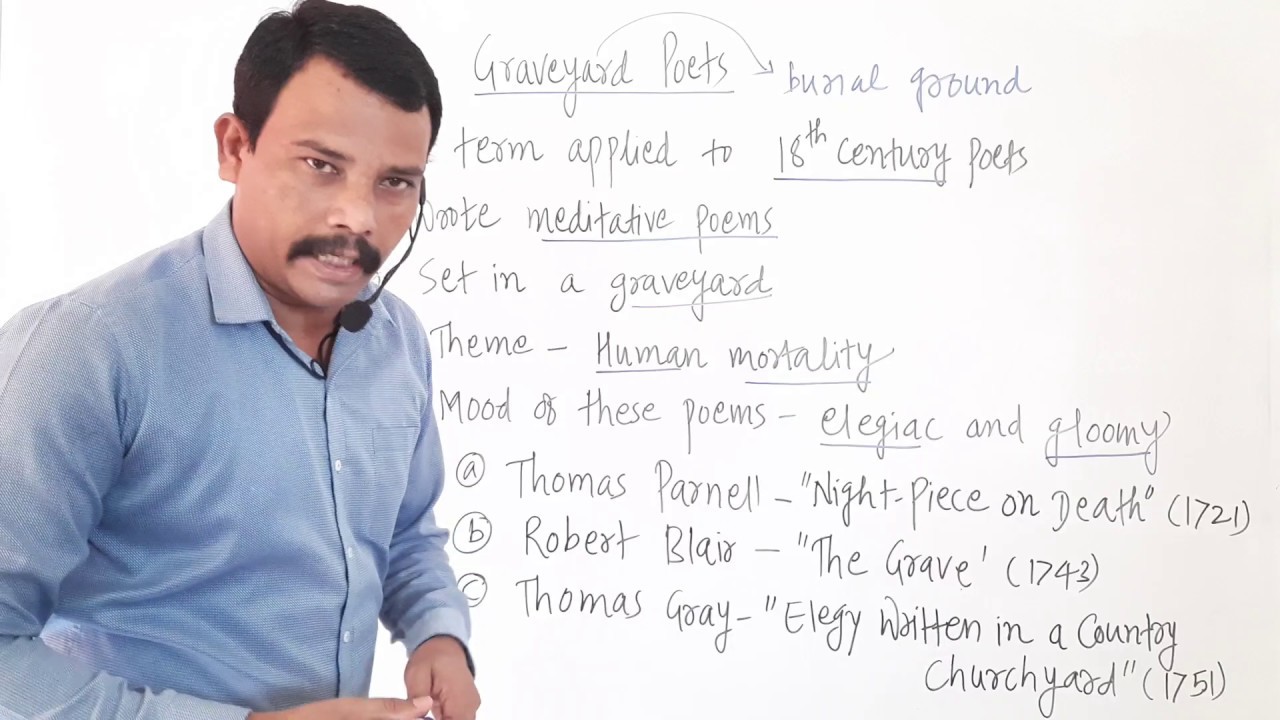 Graveyard Poets → burial ground
term applied to 18th century Poets
Wrote meditative poems
Set in a graveyard
Theme - Human mortality
Mood of these poems - elegiac and gloomy
ⓐ Thomas Parnell - "Night-Piece on Death" (1721)
ⓑ Robert Blair - "The Grave' (1743)
ⓒ Thomas Gray - "Elegy Written in a Country
Churchyard" (1751)